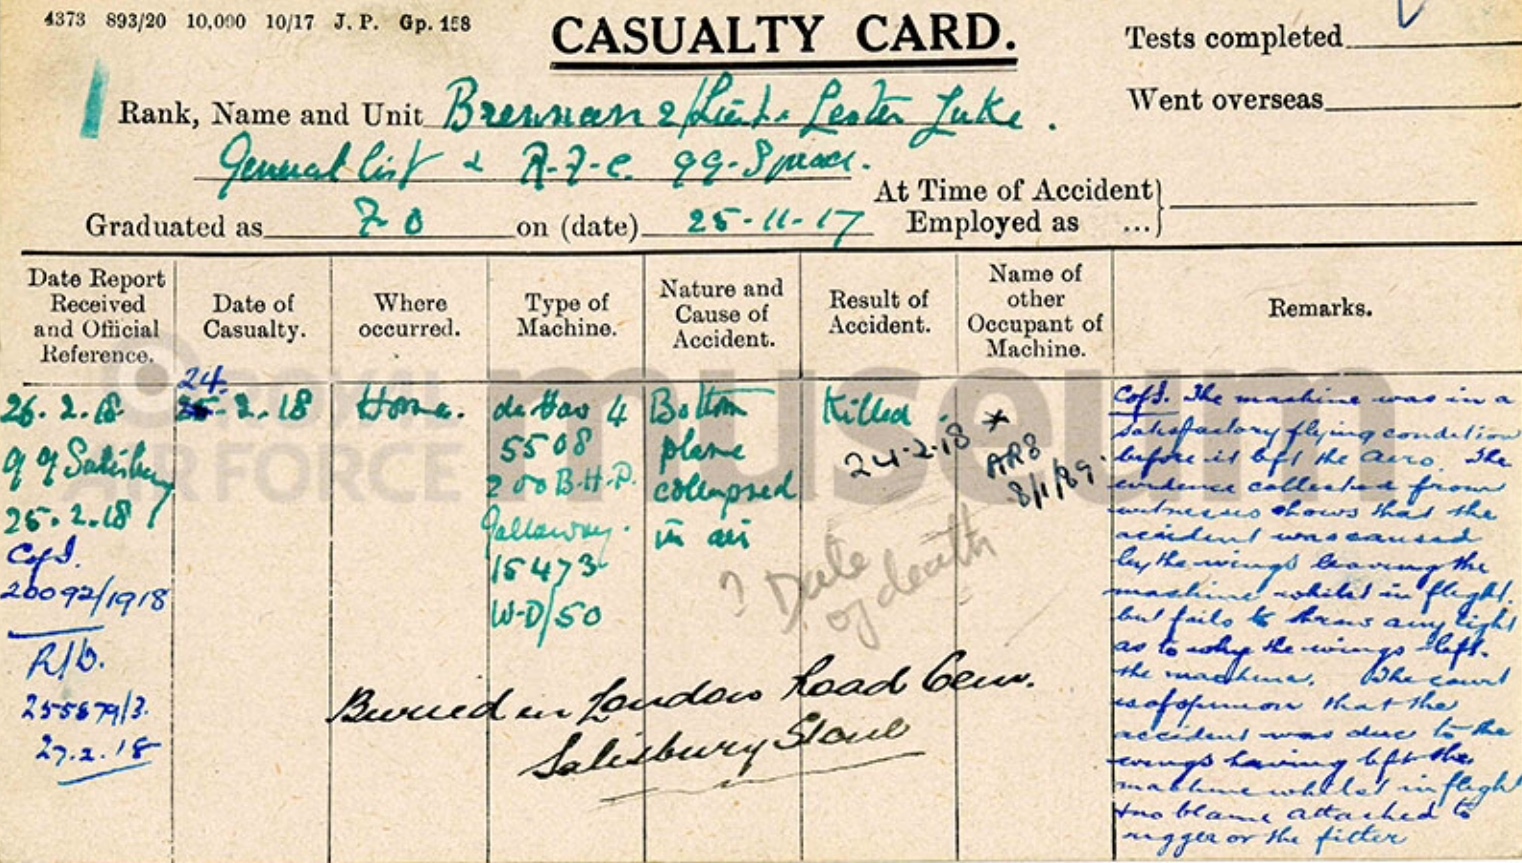 4373 893/20 10,000 10/17 J. P. Gp. 158
CASUALTY CARD.
Tests completed
Went overseas
Rank, Name and Unit Brennan 2/Lieut. Lester Luke.
General list & R.F.C. 99-Squad.
At Time of Accident
Employed as ...
Graduated as F O on (date) 25-11-17
Date Report
Received
and Official
Reference.
Date of
Casualty.
Where
occurred.
Type of
Machine.
Nature and
Cause of
Accident.
Result of
Accident.
Name of
other
Occupant of
Machine.
Remarks.
26.2.18
99 Salisbury
25.2.18
C of I.
20092/1918
R/D.
255879/3.
27.2.18
24.
25.2.18
Home.
de Hav 4
5508
200 B.H.P.
Galloway.
15473
W-D/50
Bottom
plane
collapsed
in air
Killed
24-2-18 *
AR8
8/1/89.
? Date
of death
Buried in London Road Cem.
Salisbury Stone
C of I. The machine was in a
satisfactory flying condition
before it left the aero. The
evidence collected from
witnesses shows that the
accident was caused
by the wings leaving the
machine whilst in flight,
but fails to throw any light
as to why the wings left
the machine. The court
is of opinion that the
accident was due to the
wings having left the
machine whilst in flight
& no blame attached to
rigger or the fitter
ROYAL
AIR FORCE
museum